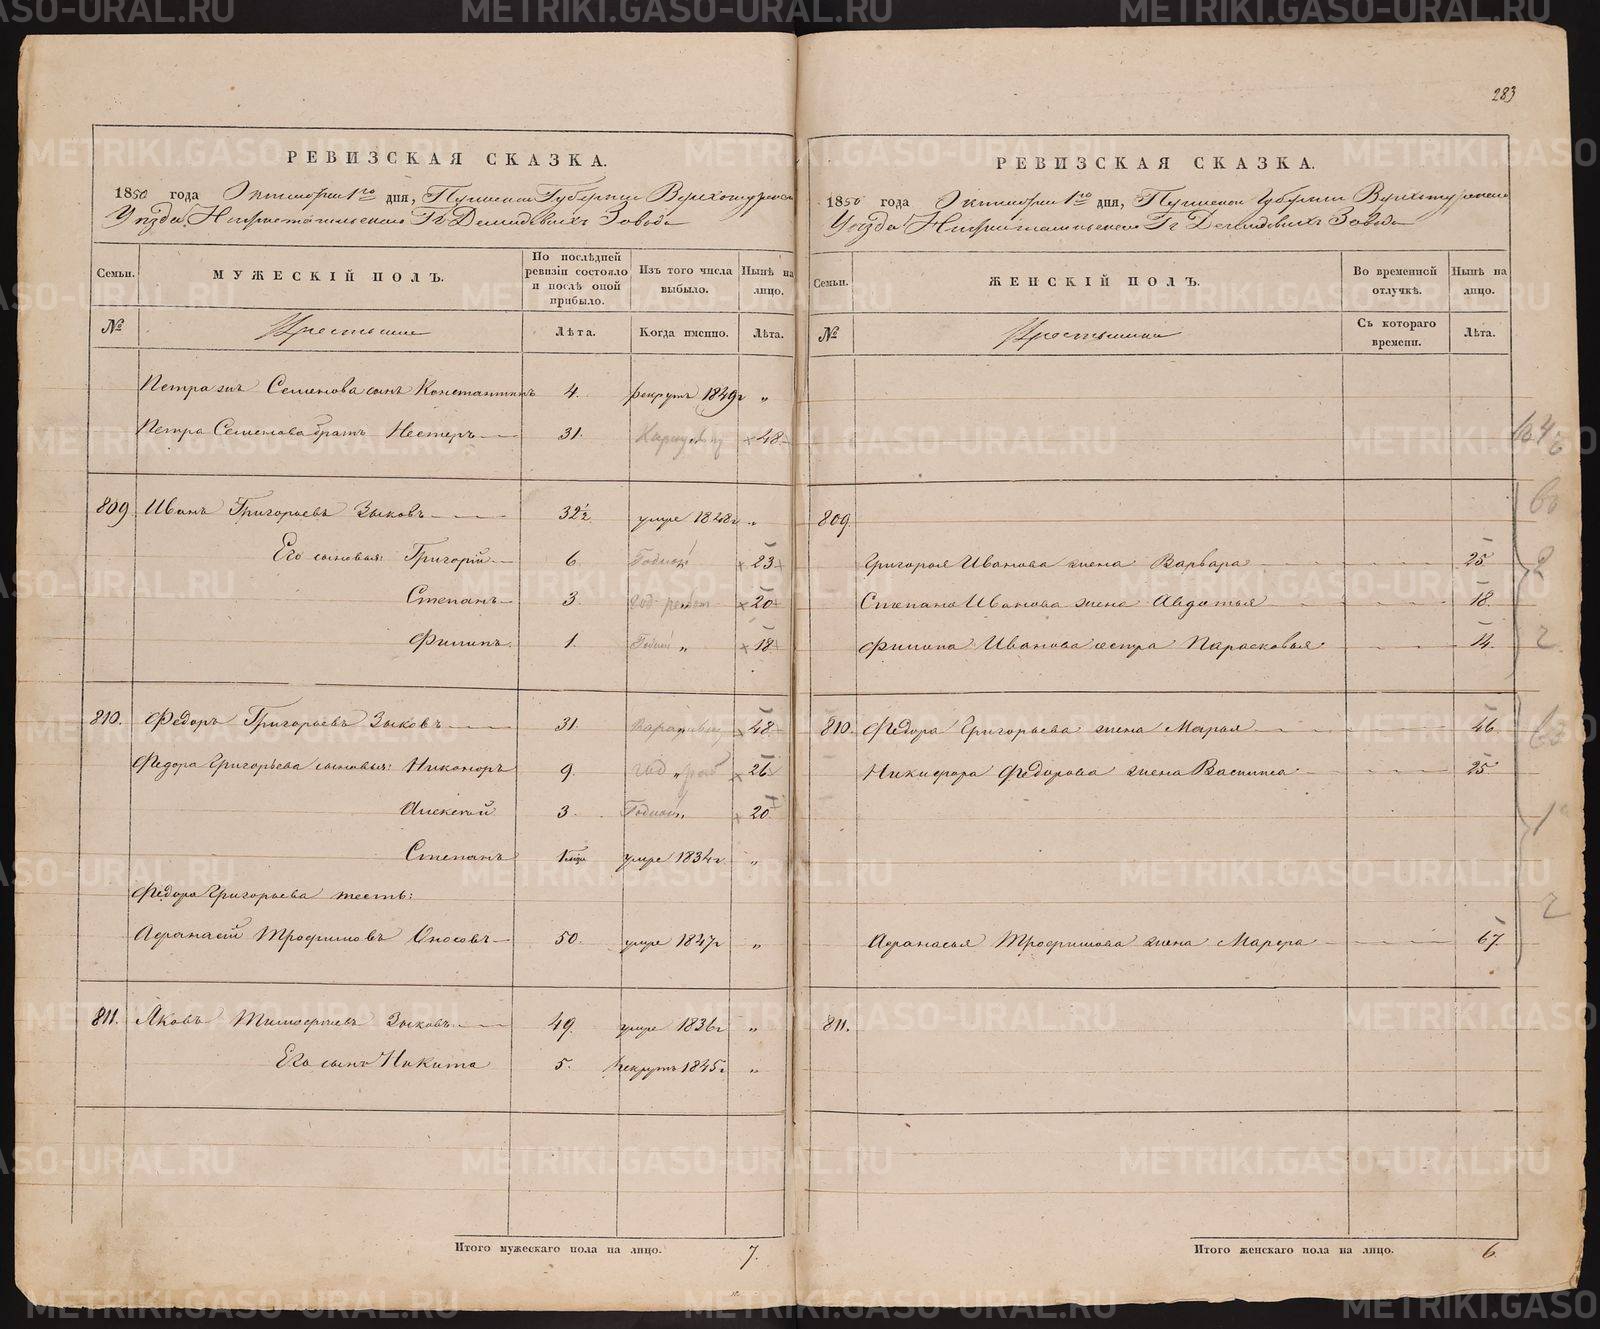 283
РЕВИЗСКАЯ СКАЗКА.
1850 года Октября 1го дня, Пермской Губернии Верхотурскаго
Уѣзда Нижнетагильскаго Гг Демидовыхъ Завода
Семьи. МУЖЕСКІЙ ПОЛЪ. По послѣдней ревизіи состояло и послѣ оной прибыло. Изъ того числа выбыло. Нынѣ на лицо.
№ Крестьяне Лѣта. Когда именно. Лѣта.
Петра жъ Семенова сынъ Константинъ 4. рекрутъ 1849г „
Петра Семенова братъ Нестеръ 31. 48
809 Иванъ Григорьевъ Зыковъ 32½ умре 1848г „
Его сыновья: Григорій 6 Годной 23
Степанъ 3. 20
Филипъ 1. Годной „ 18
810. Федоръ Григорьевъ Зыковъ 31. 48
Федора Григорьева сыновья: Никаноръ 9. год „ 26
Алексѣй 3. Годной „ 20
Степанъ умре 1834г „
Федора Григорьева тесть:
Афанасій Трофимовъ Оносовъ 50. умре 1847г „
811. Яковъ Тимофѣевъ Зыковъ 49. умре 1836г „
Его сынъ Никита 5. рекрутъ 1845г „
Итого мужескаго пола на лицо. 7.
РЕВИЗСКАЯ СКАЗКА.
1850 года Октября 1го дня, Пермской Губерніи Верхотурскаго
Уѣзда Нижнетагильскаго Гг Демидовыхъ Завода
Семьи. ЖЕНСКІЙ ПОЛЪ. Во временной отлучкѣ. Нынѣ на лицо.
№ Крестьянки Съ котораго времени. Лѣта.
809.
Григорья Иванова жена Варвара 25
Степана Иванова жена Авдотья 18.
Филипа Иванова сестра Парасковья 14.
810. Федора Григорьева жена Марья 46
Никифора Федорова жена Василиса 25
Афанасья Трофимова жена Марфа 67.
811.
Итого женскаго пола на лицо. 6.
METRIKI.GASO-URAL.RU